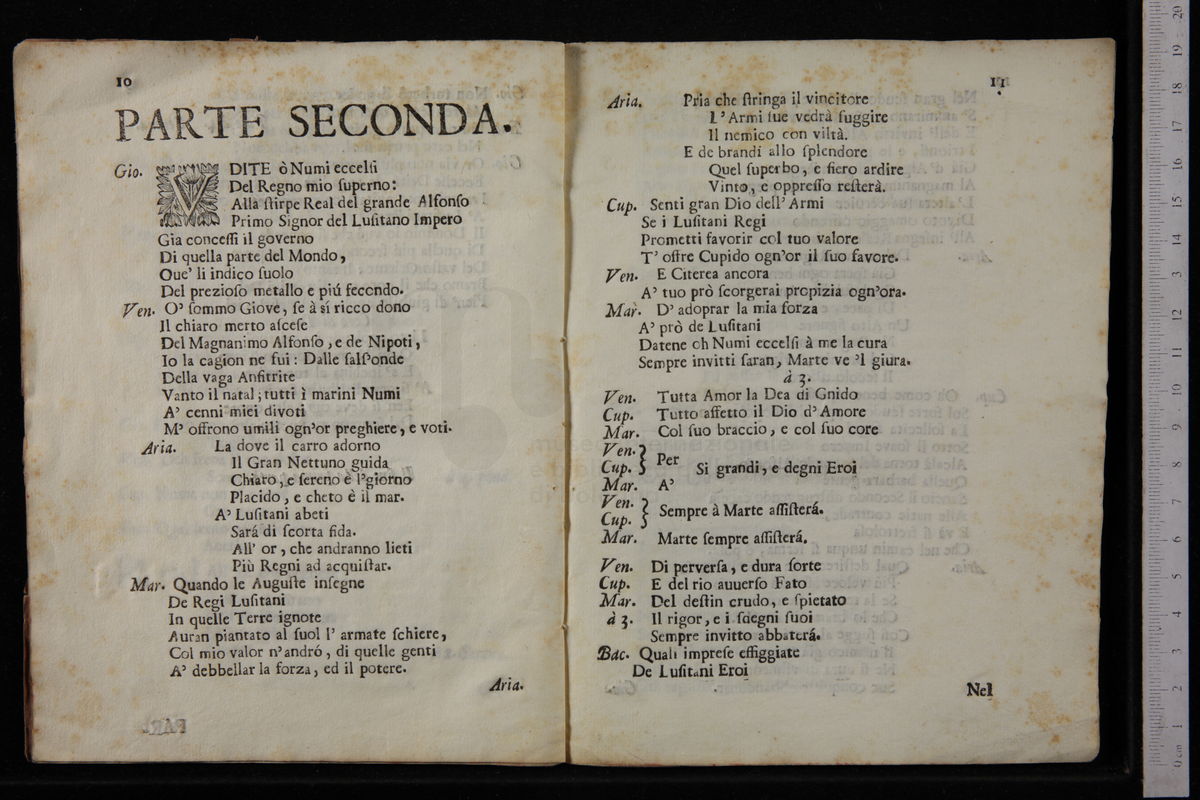 10
PARTE SECONDA.
Gio. VDITE ò Numi eccelſi
Del Regno mio ſuperno:
Alla ſtirpe Real del grande Alfonſo
Primo Signor del Luſitano Impero
Gia conceſſi il governo
Di quella parte del Mondo,
Oue' li indico ſuolo
Del prezioſo metallo e piú fecondo.
Ven. O' ſommo Giove, ſe à sí ricco dono
Il chiaro merto aſceſe
Del Magnanimo Alfonſo, e de Nipoti,
Io la cagion ne fui: Dalle ſalſ'onde
Della vaga Anfitrite
Vanto il natal; tutti i marini Numi
A' cenni miei divoti
M' offrono umili ogn'or preghiere, e voti.
Aria. La dove il carro adorno
Il Gran Nettuno guida
Chiaro, e ſereno è l'giorno
Placido, e cheto è il mar.
A' Luſitani abeti
Sará di ſcorta fida.
All' or, che andranno lieti
Più Regni ad acquiſtar.
Mar. Quando le Auguſte inſegne
De Regi Luſitani
In quelle Terre ignote
Auran piantato al ſuol l' armate ſchiere,
Col mio valor n'andró, di quelle genti
A' debbellar la forza, ed il potere.
Aria.
11
Aria. Pria che ſtringa il vincitore
L'Armi ſue vedrà fuggire
Il nemico con viltà.
E de brandi allo ſplendore
Quel ſuperbo, e fiero ardire
Vinto, e oppreſſo reſterà.
Cup. Senti gran Dio dell' Armi
Se i Luſitani Regi
Prometti favorir col tuo valore
T' oſtre Cupido ogn'or il ſuo favore.
Ven. E Citerea ancora
A' tuo prò ſcorgerai propizia ogn'ora.
Mar. D' adoprar la mia forza
A' prò de Luſitani
Datene oh Numi eccelſi à me la cura
Sempre invitti ſaran, Marte ve 'l giura.
à 3.
Ven. Tutta Amor la Dea di Gnido
Cup. Tutto affetto il Dio d' Amore
Mar. Col ſuo braccio, e col ſuo core
Ven. } Per
Cup. } Si grandi, e degni Eroi
Mar. A'
Ven. } Sempre à Marte aſſiſterá.
Cup. }
Mar. Marte ſempre aſſiſterá.
Ven. Di perverſa, e dura ſorte
Cup. E del rio auuerſo Fato
Mar. Del deſtin crudo, e ſpietato
à 3. Il rigor, e i ſdegni ſuoi
Sempre invitto abbaterá.
Bac. Quali impreſe effiggiate
De Luſitani Eroi
Nel